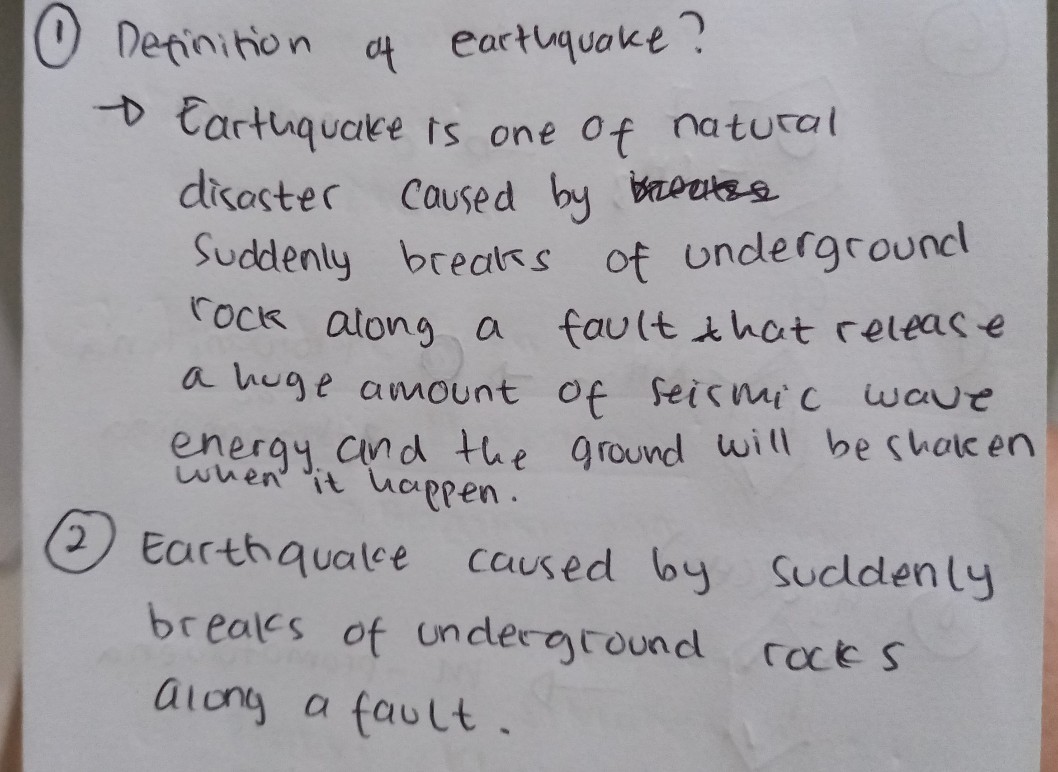 ① Definition of earthquake?
→ Earthquake is one of natural
disaster caused by
suddenly breaks of underground
rock along a fault that release
a huge amount of seismic wave
energy and the ground will be shaken
when it happen.
② Earthquake caused by suddenly
breaks of underground rocks
along a fault.